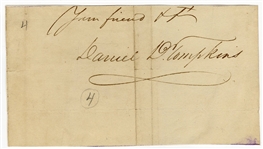 4
Your friend &c
Daniel D. Tompkins
4